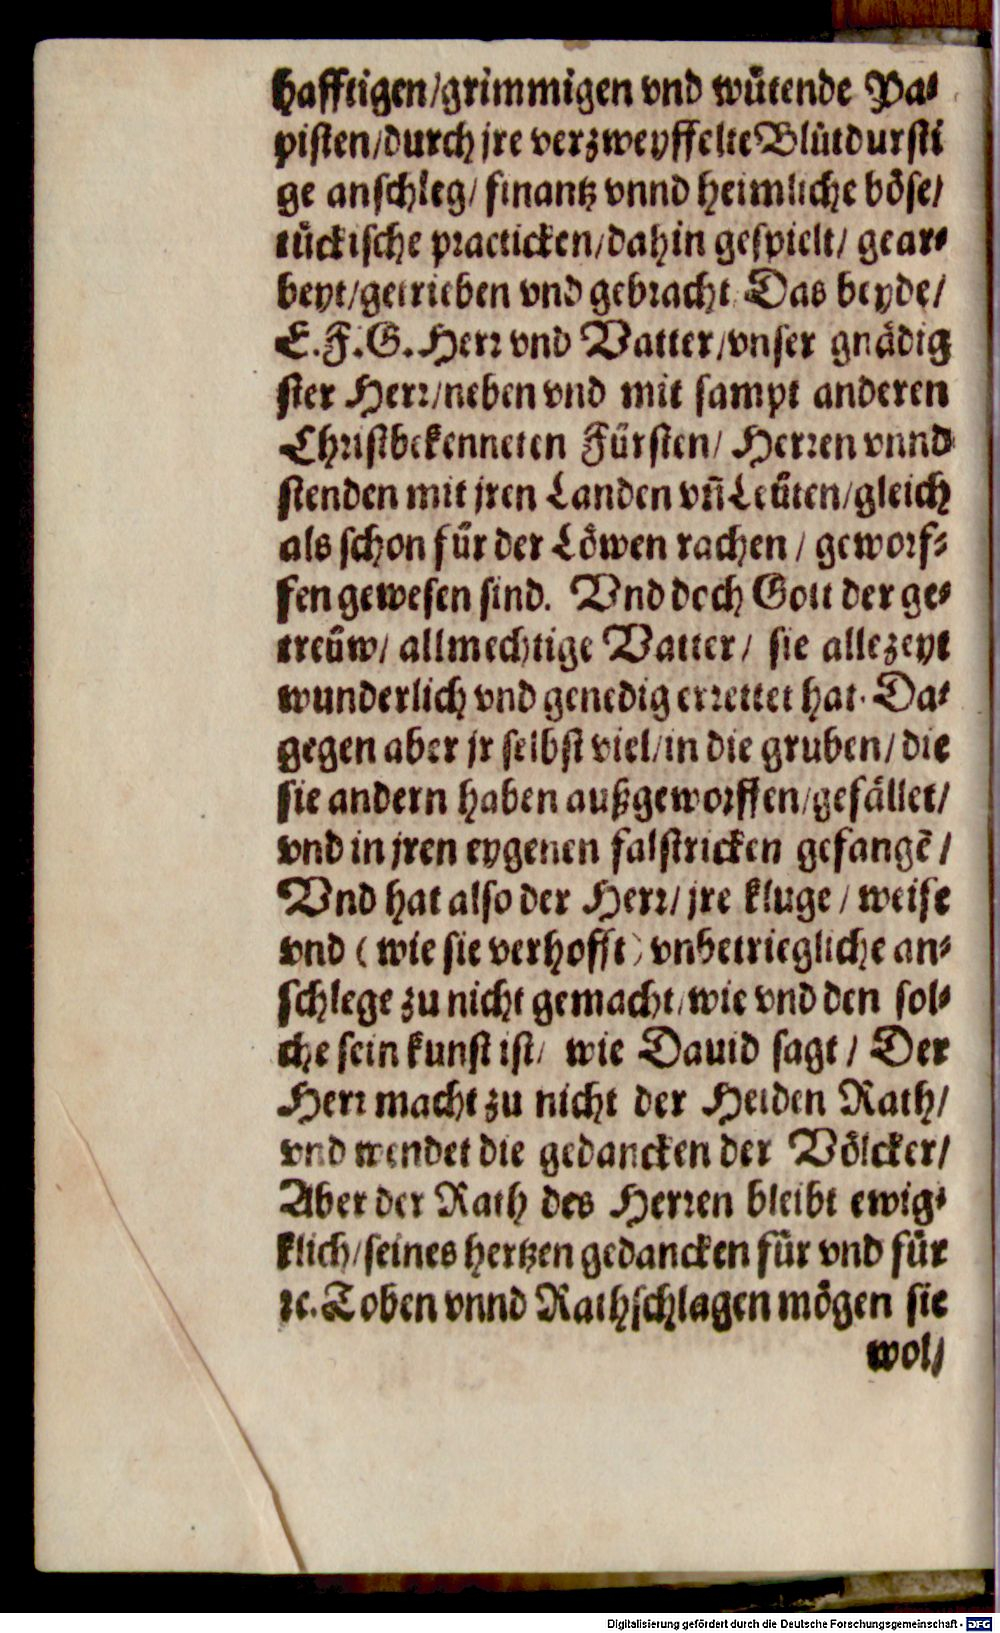 hafftigen/grimmigen vnd wůtende Pa⸗
pisten/durch jre verzweyffelte Blůtdursti
ge anschleg/ finantz vnnd heimliche böse/
tückische practicken/dahin gespielt/ gear⸗
beyt/getrieben vnd gebracht Das beyde/
E.F.G. Herr vnd Vatter/vnser gnädig
ster Herr/neben vnd mit sampt anderen
Christbekenneten Fürsten/ Herren vnnd
stenden mit jren Landen vñ Leüten/gleich
als schon für der Löwen rachen / geworf⸗
fen gewesen sind. Vnd doch Gott der ge⸗
treüw/ allmechtige Vatter/ sie allezeyt
wunderlich vnd genedig errettet hat. Da⸗
gegen aber jr selbst viel/in die gruben/ die
sie andern haben außgeworffen/gefället/
vnd in jren eygenen falstricken gefangē /
Vnd hat also der Herr/ jre kluge / weise
vnd (wie sie verhofft) vnbetriegliche an⸗
schlege zu nicht gemacht/wie vnd den sol⸗
che sein kunst ist/ wie Dauid sagt / Der
Herr macht zu nicht der Heiden Rath/
vnd wendet die gedancken der Völcker/
Aber der Rath des Herren bleibt ewig⸗
klich/seines hertzen gedancken für vnd für
ꝛc. Toben vnnd Rathschlagen mögen sie
wol/
Digitalisierung gefördert durch die Deutsche Forschungsgemeinschaft - DFG